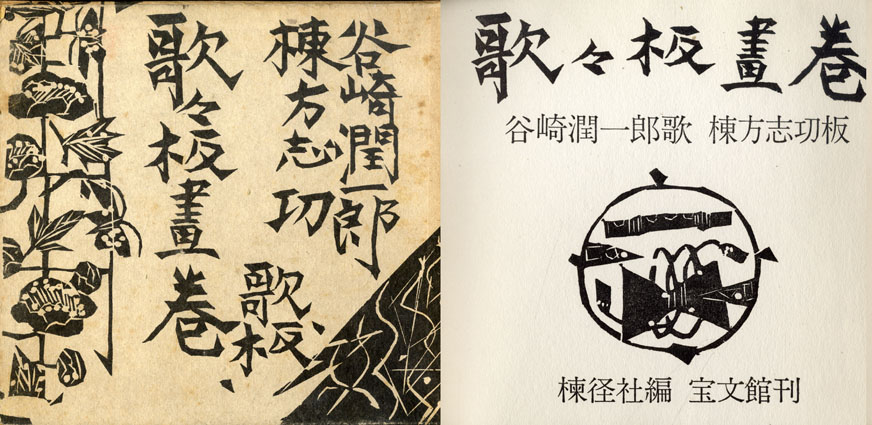 谷崎潤一郎
棟方志功
歌板
歌々板畫巻
歌々板畫巻
谷崎潤一郎歌 棟方志功板
棟径社編 宝文館刊